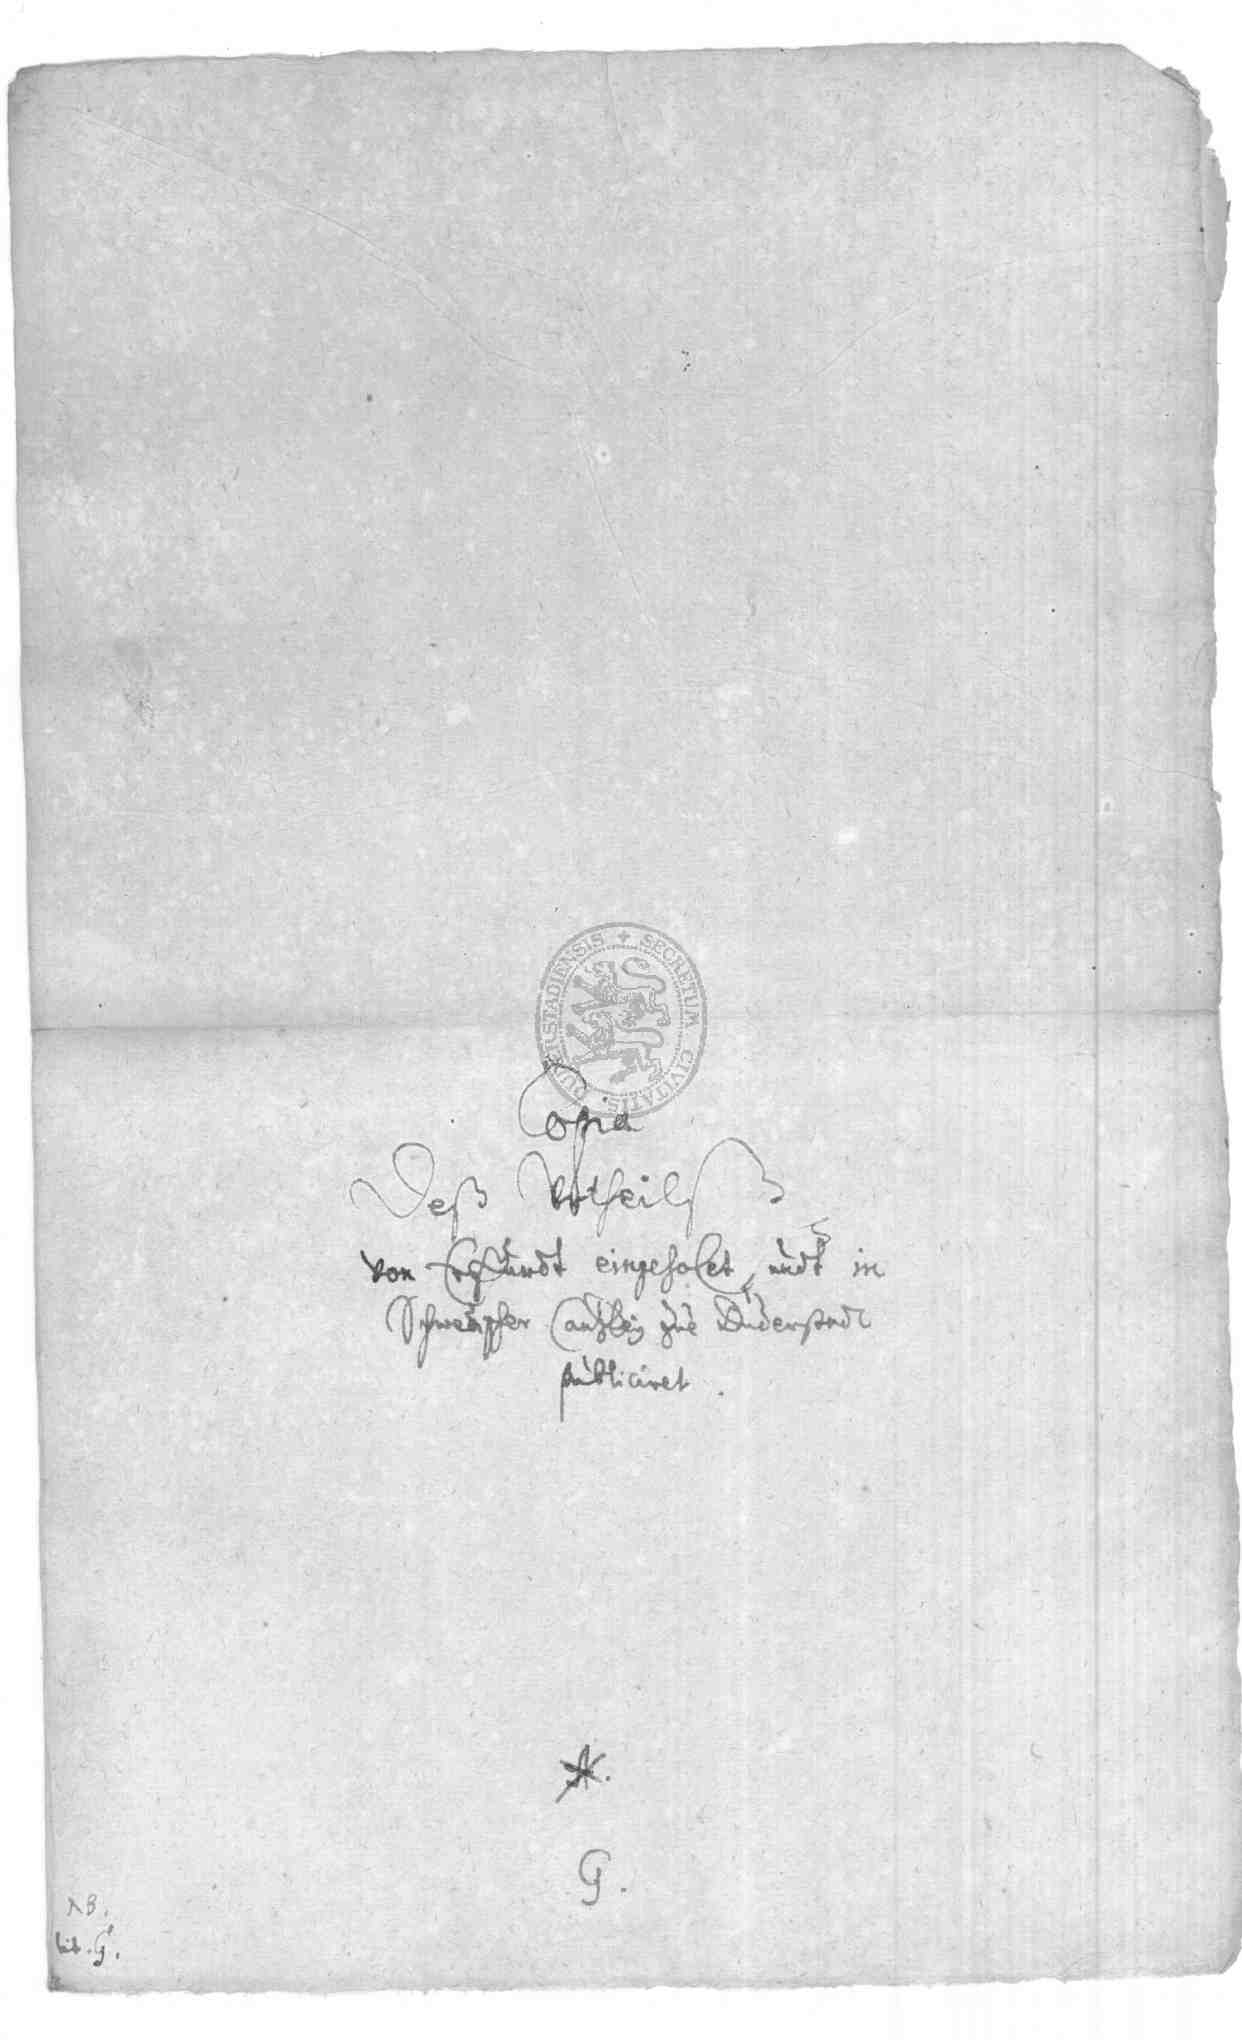 SECRETUM CIVITATIS DUDERSTADIENSIS
Copia
Deß Vrtheilß
von Erffurdt eingeholet, undt in
Cantzley zue Duderstadt
publiciret.
G.
NB.
Lit. G.